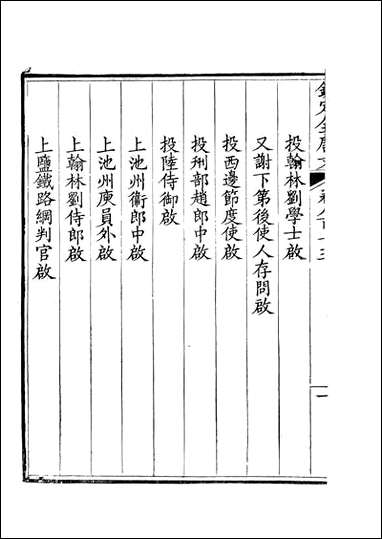 欽定全唐文
一
投翰林劉學士啟
又謝下第後使人存問啟
投西邊節度使啟
投刑部趙郎中啟
投陸侍御啟
上池州衞郎中啟
上池州庾員外啟
上翰林劉侍郎啟
上鹽鐵路綱判官啟